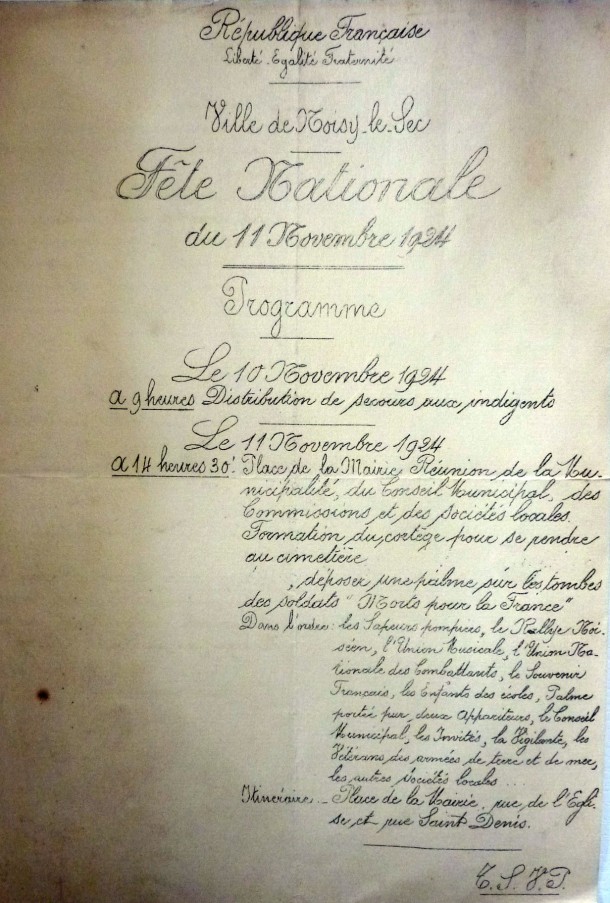 République Française
Liberté - Egalité Fraternité
Ville de Noisy-le-Sec
Fête Nationale
du 11 Novembre 1924
Programme
Le 10 Novembre 1924
a 9 heures Distribution de secours aux indigents
Le 11 Novembre 1924
a 14 heures 30'. Place de la Mairie Réunion de la Mu-
nicipalité, du Conseil Municipal, des
Commissions et des sociétés locales.
Formation du cortège pour se rendre
au cimetière
, déposer une palme sur les tombes
des soldats "Morts pour la France"
Dans l'ordre: les Sapeurs pompiers, le Rallye Noi-
séen, l'Union Musicale, l'Union Na-
tionale des Combattants, le Souvenir
Français, les Enfants des écoles, Palme
portée par deux Appariteurs, le Conseil
Municipal, les Invités, la Vigilante, les
Vétérans des armées de terre et de mer,
les autres sociétés locales ...
Itinéraire - Place de la Mairie, rue de l'Egli-
se et rue Saint Denis.
T. S. V. P.